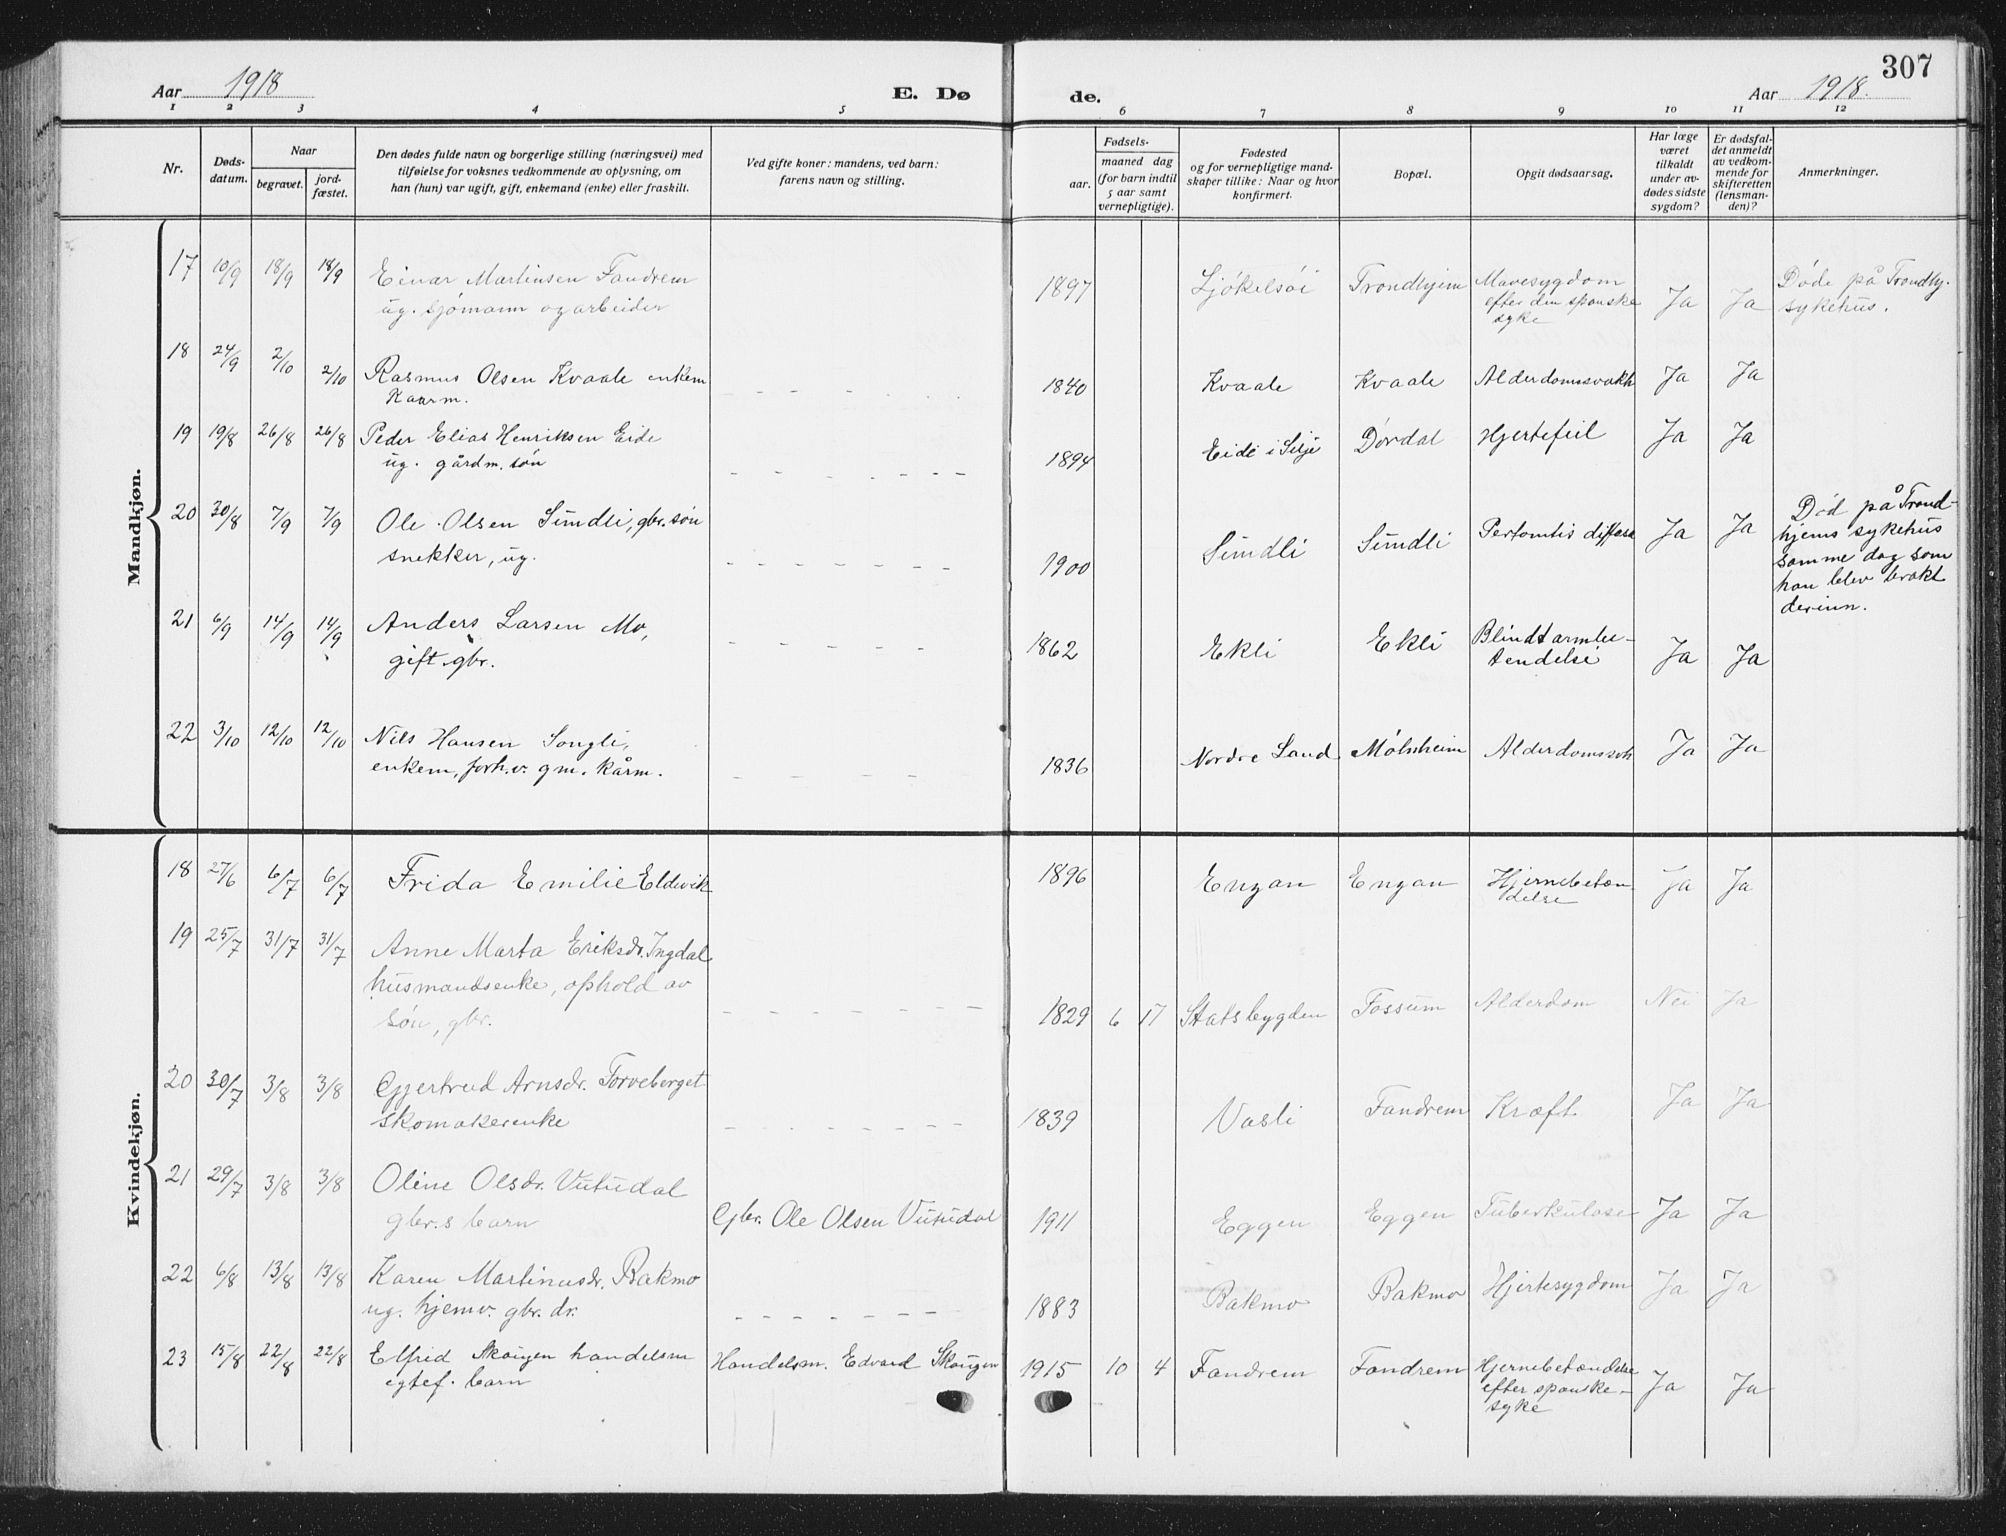 Aar 1918
E. Dø
de.
Aar 1918.
307
1 2 3 4 5 6 7 8 9 10 11 12
Nr.
Døds-
datum.
Naar
begravet.
jord-
fæstet.
Den dødes fulde navn og borgerlige stilling (næringsvei) med
tilføielse for voksnes vedkommende av oplysning, om
han (hun) var ugift, gift, enkemand (enke) eller fraskilt.
Ved gifte koner: mandens, ved barn:
farens navn og stilling.
Fødsels-
aar.
maaned dag
(for barn indtil
5 aar samt
vernepligtige).
Fødested
og for vernepligtige mand-
skaper tillike: Naar og hvor
konfirmert.
Bopæl.
Opgit dødsaarsag.
Har læge
været
tilkaldt
under av-
dødes sidste
sygdom?
Er dødsfal-
det anmeldt
av vedkom-
mende for
skifteretten
(lensman-
den)?
Anmerkninger.
Mandkjøn.
17 10/9 18/9 18/9 Einar Martinsen Fandrem
ug. sjømann og arbeider
1897 Ljøkelsøi Trondhjem Mavesygdom
efter den spanske
syke
Ja Ja Døde på Trondhj.
sykehus.
18 24/9 2/10 2/10 Rasmus Olsen Kvaale enkem
Kaarm.
1840 Kvaale Kvaale Alderdomssvakh Ja Ja
19 19/8 26/8 26/8 Peder Elias Henriksen Eide
ug. gårdm. søn
1894 Eide i Silje Dørdal Hjertefeil Ja Ja
20 30/8 7/9 7/9 Ole Olsen Sundli, gbr. søn
snekker, ug.
1900 Sundli Sundli Ja Ja
Død på Trond-
hjems sykehus
samme dag som
han blev brakt
derinn.
21 6/9 14/9 14/9 Anders Larsen Mo,
gift gbr.
1862 Ekli Ekli Blindtarmbe-
tendelse
Ja Ja
22 3/10 12/10 12/10 Nils Hansen Songli,
enkem, forh.v. gm. kårm.
1836 Nordre Land Mølnheim Alderdomssvh Ja Ja
Kvindekjøn.
18 27/6 6/7 6/7 Frida Emilie Eldevik
1896 Engan Engan Hjernebetæn
delse
Ja Ja
19 25/7 31/7 31/7 Anne Marta Eriksdr. Ingdal
husmandsenke, ophold av
søn, gbr.
1829 6 17 Statsbygden Fossum Alderdom Nei Ja
20 30/7 3/8 3/8 Gjertrud Arnsdr. Torveberget
skomakerenke
1839 Vasli Fandrem Kræft Ja Ja
21 29/7 3/8 3/8 Oline Olsdr. Vutudal
gbr.s barn
Gbr. Ole Olsen Vutudal
1911 Eggen Eggen Tuberkulose Ja Ja
22 6/8 13/8 13/8 Karen Martinusdr. Bakmo
ug. hjemv. gbr. dr.
1883 Bakmo Bakmo Hjertesygdom Ja Ja
23 15/8 22/8 22/8 Elfrid Skaugen handelsm
egtef. barn
Handelsm. Edvard Skaugen
1915 10 4 Fandrem Fandrem Hjernebetændelse
efter spanske-
syke
Ja Ja